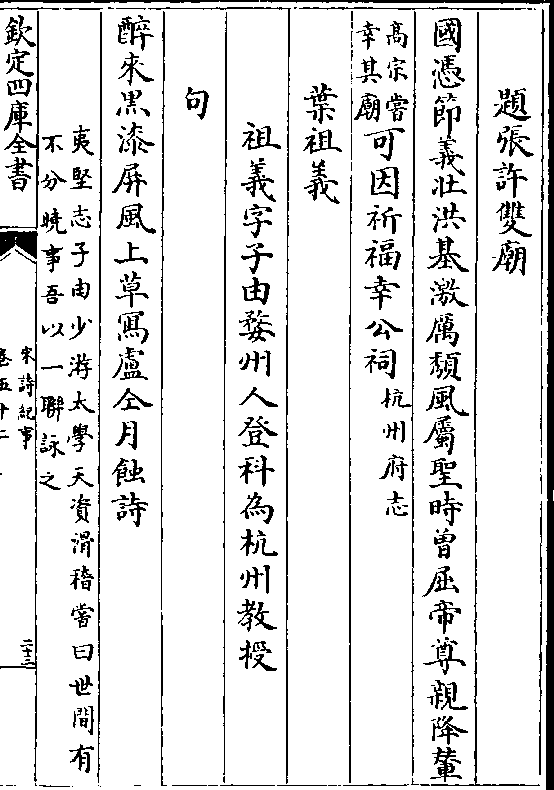 題張許雙廟
國憑節義壯洪基激厲頽風屬聖時曾屈帝尊親降輦
高宗嘗
幸其廟
可因祈福幸公祠
杭州府志
葉祖義
祖義字子由婺州人登科為杭州教授
句
醉來黒漆屏風上草寫盧仝月蝕詩
夷堅志子由少游太學天資滑稽嘗曰世間有
不分曉事吾以一聯詠之
欽定四庫全書
宋詩紀事
卷五十二
二十三